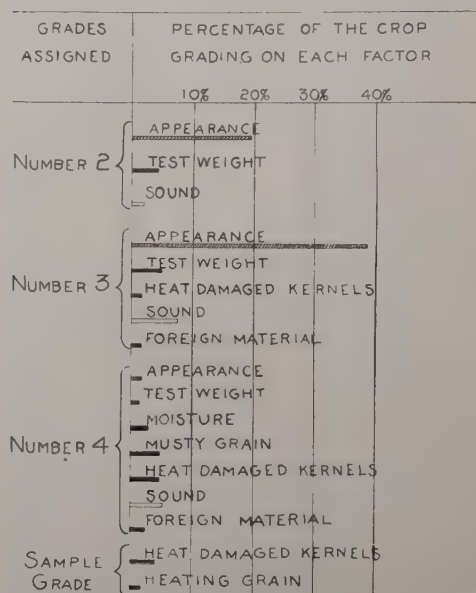 GRADES ASSIGNED
PERCENTAGE OF THE CROP GRADING ON EACH FACTOR
10% 20% 30% 40%
NUMBER 2
APPEARANCE
TEST WEIGHT
SOUND
NUMBER 3
APPEARANCE
TEST WEIGHT
HEAT DAMAGED KERNELS
SOUND
FOREIGN MATERIAL
NUMBER 4
APPEARANCE
TEST WEIGHT
MOISTURE
MUSTY GRAIN
HEAT DAMAGED KERNELS
SOUND
FOREIGN MATERIAL
SAMPLE GRADE
HEAT DAMAGED KERNELS
HEATING GRAIN